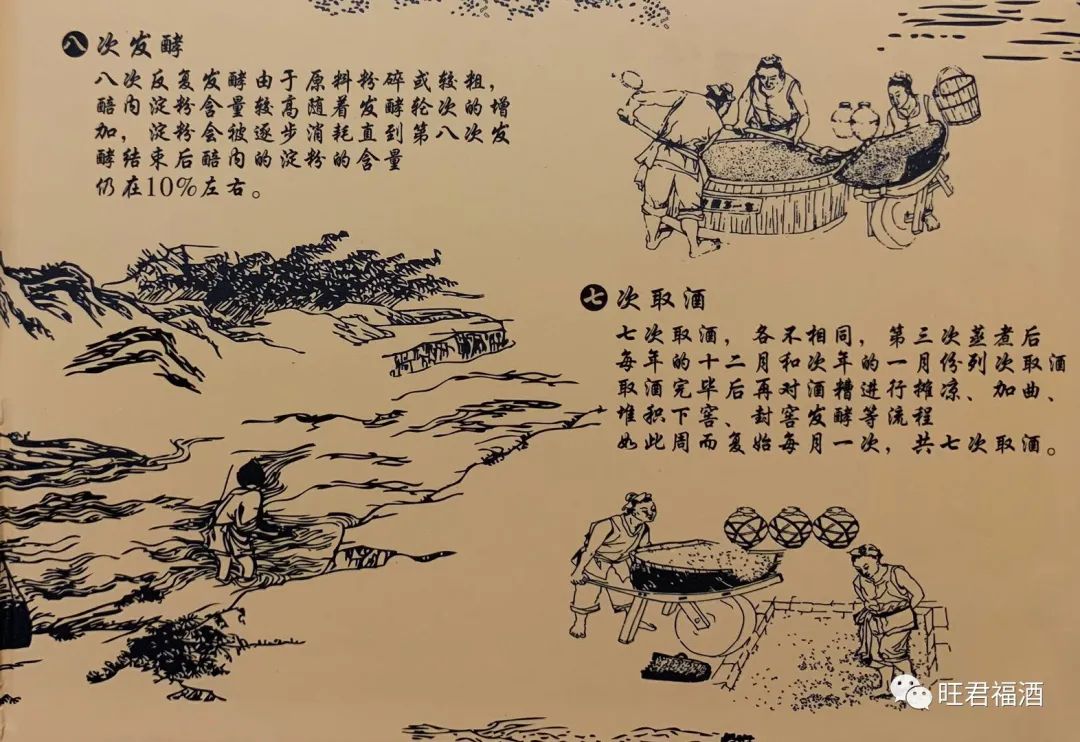 八次发酵
八次反复发酵由于原料粉碎或较粗，
醅内淀粉含量较高随着发酵轮次的增
加，淀粉会被逐步消耗直到第八次发
酵结束后醅内的淀粉的含量
仍在10%左右。
七次取酒
七次取酒，各不相同，第三次蒸煮后
每年的十二月和次年的一月份列次取酒
取酒完毕后再对酒糟进行摊凉、加曲、
堆积下窖、封窖发酵等流程
如此周而复始每月一次，共七次取酒。
旺君福酒